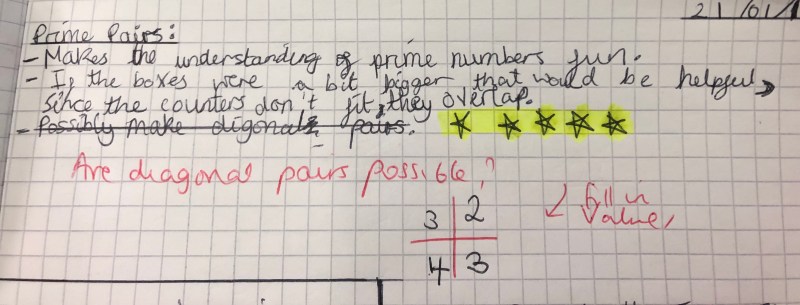 21/01/1
Prime Pairs:
- Makes the understanding of prime numbers fun.
- If the boxes were a bit bigger that would be helpful,
since the counters don't fit, they overlap.
- Possibly make digonals pairs.
Are diagonal pairs possible?
3 2
4 3
fill in
Value,